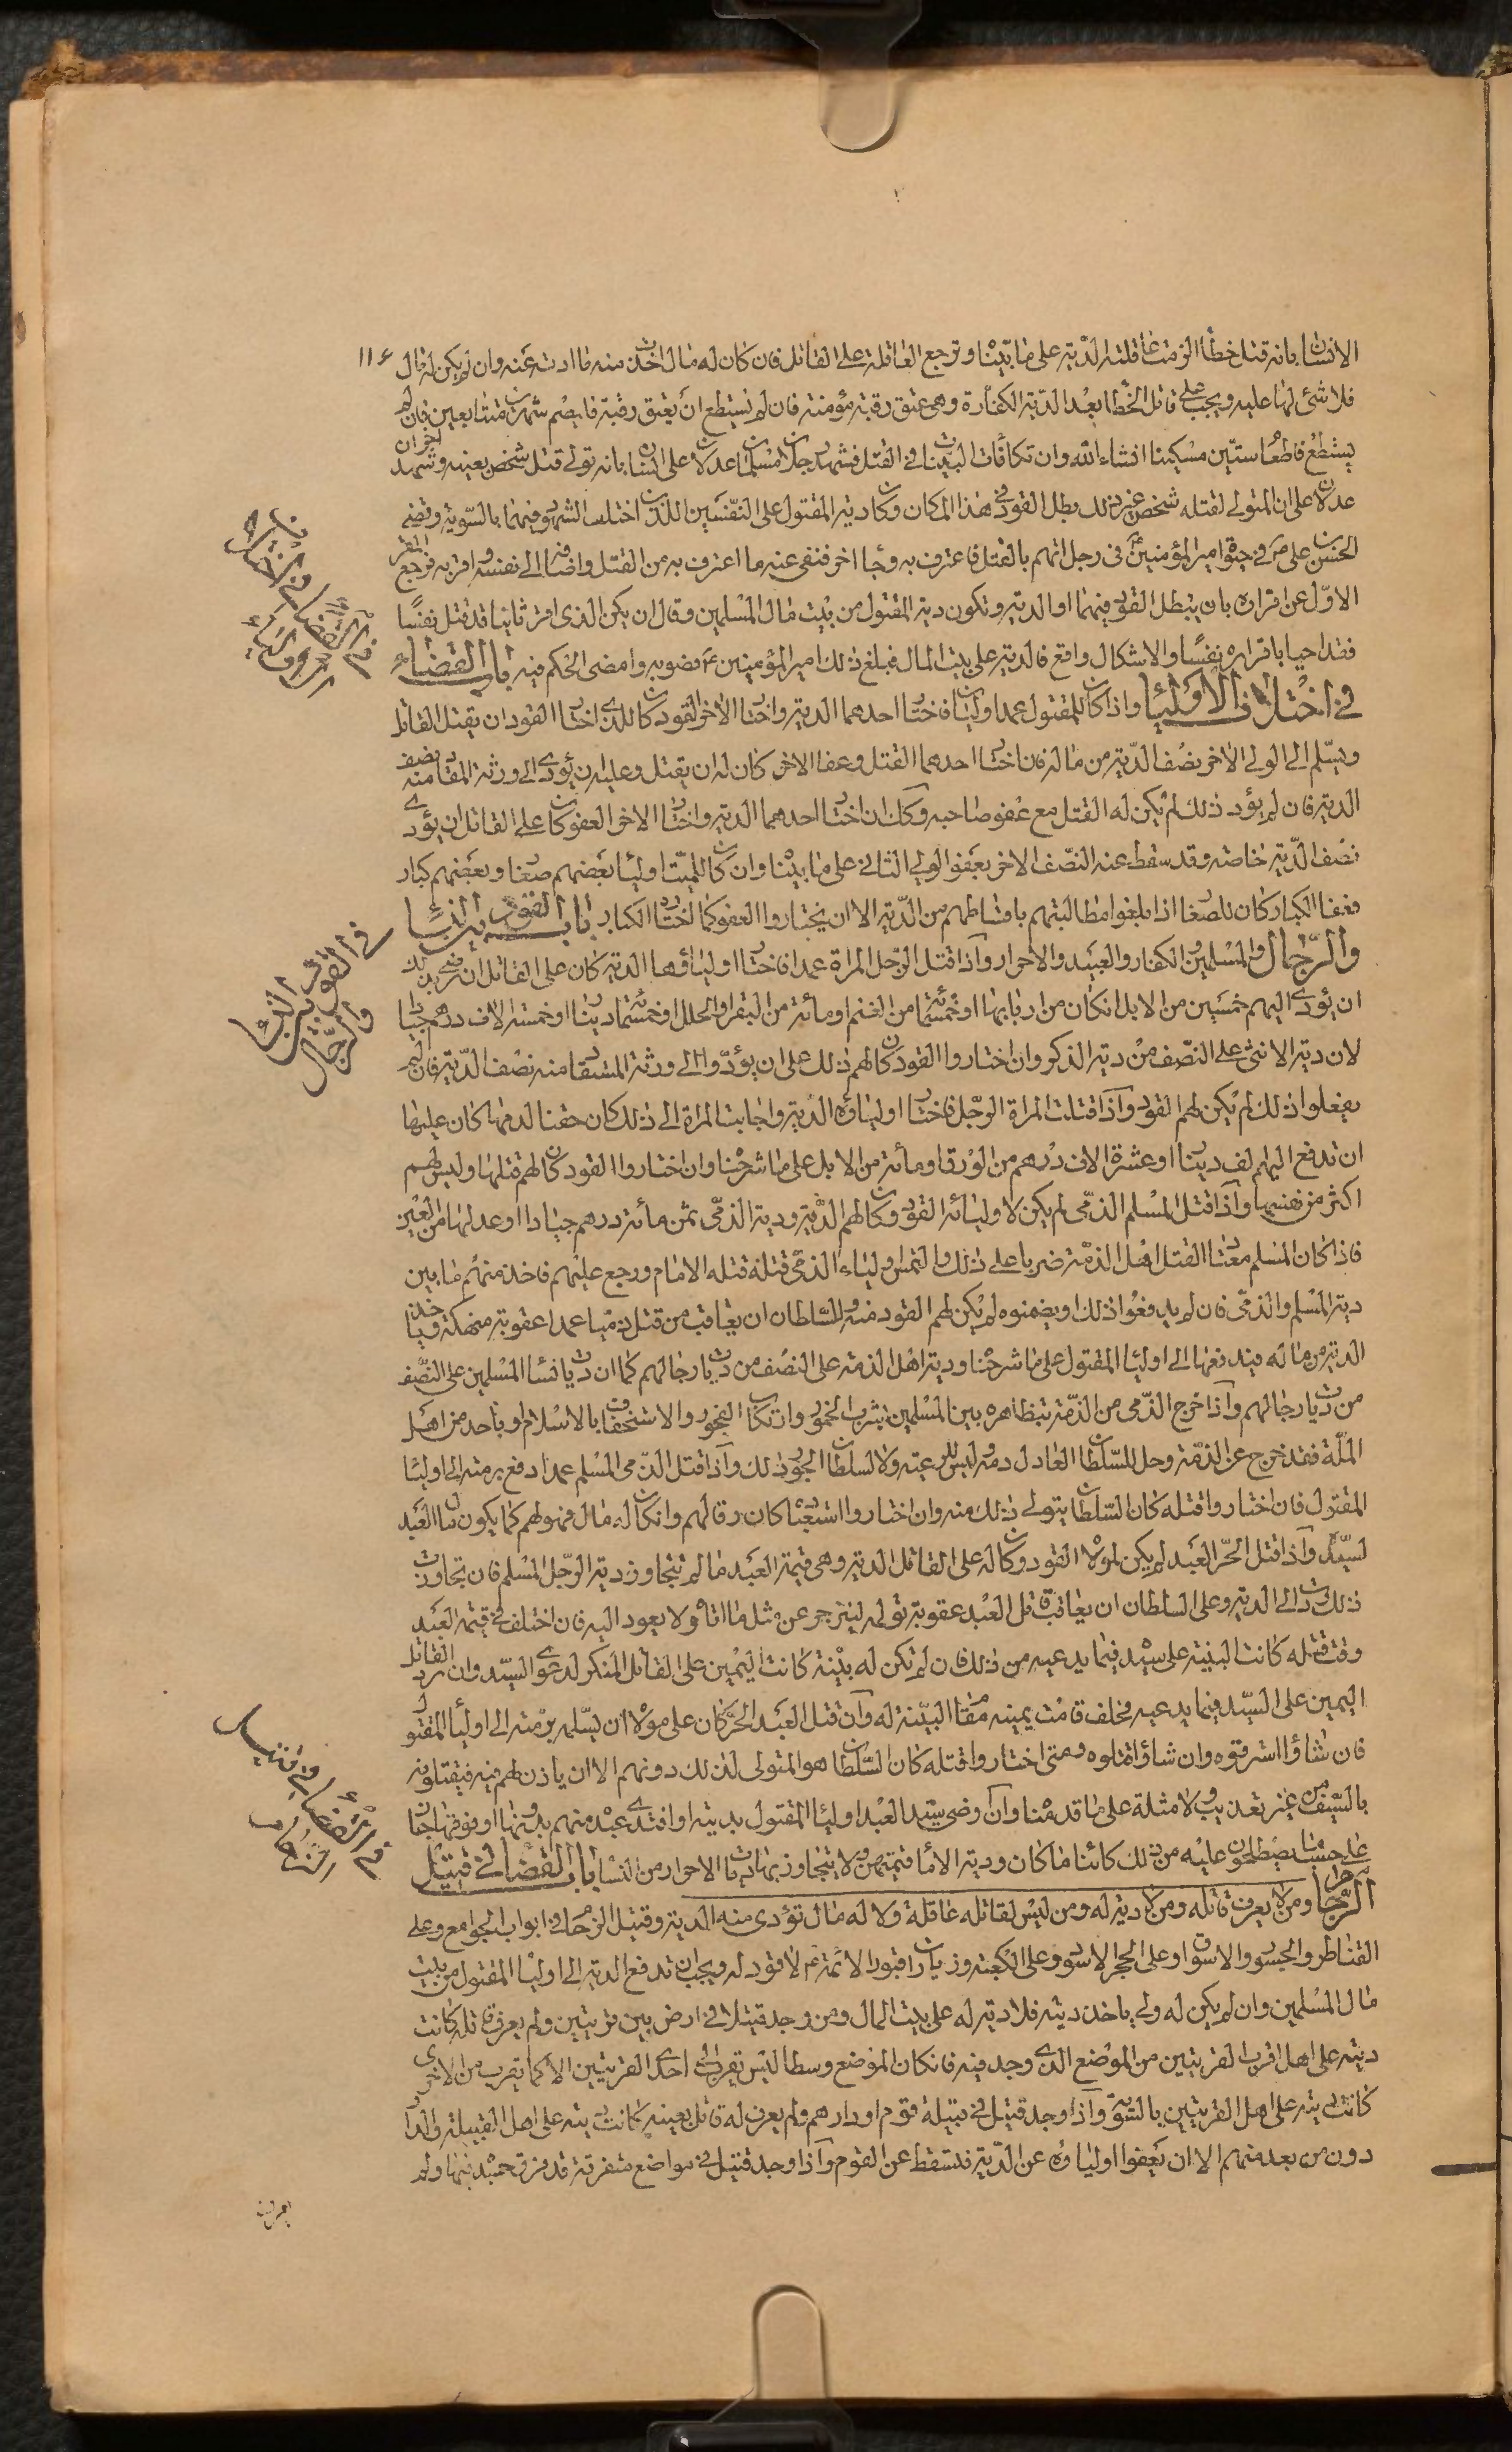 الانسان بانه قتل خطأ الزمت عاقلته الدية على ما بيناه وترجع العاقلة على القاتل فان كان له مال اخذت منه ما ادت عنه وان لم يكن له مال ١١٤
فلا شئ لها عليه ويجب على قاتل الخطا بعد الدية الكفارة وهى عتق رقبة مؤمنة فان لم يستطع ان يعتق رقبة فليصم شهرين متتابعين فان لم
يستطع فاطعام ستين مسكينا انشاء الله وان تكافأت البينات فى القتل فشهد رجلان مسلمان عدلان على انسان بانه تولى قتل شخص بعينه وشهد اخران
عدلان على ان المتولى لقتله شخص غير ذلك بطل القود فى هذا المكان وكان دية المقتول على النفسين اللذين اختلف الشهود فيهما بالسوية وقضى
الحسن بن على ع فى حيوة امير المؤمنين ع فى رجل اتهم بالقتل فاعترف به وجاء اخر فنفى عنه ما اعترف به من القتل واضافه الى نفسه واقر به فرجع المقر
الاول عن اقراره بان يبطل القود فيهما او الدية وتكون دية المقتول من بيت مال المسلمين وقال ان يكن الذى اقر ثانيا قد قتل نفسا
فقد احيا باقراره نفسا والاشكال واقع فالدية على بيت المال فبلغ ذلك امير المؤمنين ع فصوبه وامضى الحكم فيه باب القضاء
فى اختلاف الاولياء واذا كان للمقتول عمدا وليان فاختار احدهما الدية واختار الاخر القود كان للذى اختار القود ان يقتل القاتل
ويسلم الى الولى الاخر نصف الدية من ماله فان اختار احدهما القتل وعفا الاخر كان له ان يقتل وعليه ان يؤدى الى ورثة المقاد منه نصف
الدية فان لم يؤد ذلك لم يكن له القتل مع عفو صاحبه وكك ان اختار احدهما الدية واختار الاخر العفو كان على القاتل ان يؤدى
نصف الدية خاصة وقد سقط عنه النصف الاخر بعفو الولى الثانى على ما بيناه وان كان للميت اولياء بعضهم صغار وبعضهم كبار
فعفا الكبار كان للصغار اذا بلغوا مطالبتهم باقساطهم من الدية الا ان يختاروا العفو كما اختاره الكبار باب القود بين النساء
والرجال والمسلمين والكفار والعبيد والاحرار واذا قتل الرجل المراة عمدا فاختار اولياؤها الدية كان على القاتل ان رضى بذلك
ان يؤدى اليهم خمسين من الابل ان كان من اربابها او خمسمائة من الغنم او مائة من البقر او الحلل او خمسمائة دينار او خمسة الاف درهم جيادا
لان دية الانثى على النصف من دية الذكر وان اختاروا القود كان لهم ذلك على ان يؤدوا الى ورثة المستقاد منه نصف الدية فان لم
يفعلوا ذلك لم يكن لهم القود واذا قتلت المراة الرجل فاختار اولياؤه الدية واجابت المراة الى ذلك كان حقنا لدمها كان عليها
ان تدفع اليهم الف دينار او عشرة الاف درهم من الورق او مائة من الابل على ما شرحناه وان اختاروا القود كان لهم قتلها وليس لهم
اكثر من نفسها واذا قتل المسلم الذمى لم يكن لاوليائه القود وكان لهم الدية ودية الذمى ثمن مائة درهم جيادا او عدلها من العين
فاذا كان المسلم معتادا لقتل اهل الذمة ضربا على ذلك والتمس اولياء الذمى قتله قتله الامام ورجع عليهم فاخذ منهم ما بين
دية المسلم والذمى فان لم يدفعوا ذلك او يضمنوه لم يكن لهم القود منه وللسلطان ان يعاقب من قتل ذميا عمدا عقوبة منهكة وياخذ
الدية من ماله فيدفعها الى اولياء المقتول على ما شرحناه ودية اهل الذمة على النصف من ديات رجالهم كما ان ديات نساء المسلمين على النصف
من ديات رجالهم واذا خرج الذمى من الذمة بتظاهره بين المسلمين بشرب الخمور وارتكاب الفجور والاستخفاف بالاسلام او باحد من اهل
الملة فقد خرج عن الذمة وحل للسلطان العادل دمه وليس للرعية ولا لسلطان الجور ذلك واذا قتل الذمى المسلم عمدا دفع برمته الى اولياء
المقتول فان اختاروا قتله كان السلطان يتولى ذلك منه وان اختاروا استعباده كان رقا لهم وان كان له مال فهو لهم كما يكون مال العبد
لسيده واذا قتل الحر العبد لم يكن لمولاه القود وكان له على القاتل الدية وهى قيمة العبد ما لم تتجاوز دية الرجل المسلم فان تجاوزت
ذلك ردت الى الدية وعلى السلطان ان يعاقب قاتل العبد عقوبة تؤلمه لينزجر عن مثل ما اتاه ولا يعود اليه فان اختلف فى قيمة العبد
وقت قتله كانت البينة على سيده فيما يدعيه من ذلك فان لم تكن له بينة كانت اليمين على القاتل المنكر لدعوى السيد وان رد القاتل
اليمين على السيد فيما يدعيه فحلف قامت يمينه مقام البينة له وان قتل العبد الحر كان على مولاه ان يسلمه برمته الى اولياء المقتول
فان شاؤا استرقوه وان شاؤا قتلوه ومتى اختاروا قتله كان السلطان هو المتولى لذلك دونهم الا ان ياذن لهم فيه فيقتلونه
بالسيف من غير تعذيب ولا مثلة على ما قدمناه وان رضى سيد العبد اولياء المقتول بديته او افتدى عبده منهم بدونها او فوقها جاز
على حسب ما يصطلحون عليه من ذلك كائنا ما كان ودية الاماء قيمتهن ولا يتجاوز بها ديات الاحرار من النساء باب القضاء فى قتيل
الزحام ومن لا يعرف قاتله ومن لا دية له ومن ليس لقاتله عاقلة ولا له مال تؤدى منه الدية وقتيل الزحام فى ابواب الجوامع وعلى
القناطر والجسور والاسواق وعلى الحجر الاسود وعلى الكعبة وزيارات قبور الائمة ع لا قود له ويجب ان تدفع الدية الى اولياء المقتول من بيت
مال المسلمين وان لم يكن له ولى ياخذ ديته فلا دية له على بيت المال ومن وجد قتيلا فى ارض بين قريتين ولم يعرف قاتله كانت
ديته على اهل اقرب القريتين من الموضع الذى وجد فيه فان كان الموضع وسطا ليس يقرب الى احدى القريتين الا كما يقرب من الاخرى
كانت ديته على اهل القريتين بالسوية واذا وجد قتيل فى قبيلة قوم او دارهم ولم يعرف له قاتل بعينه كانت ديته على اهل القبيلة والدار
دون من بعد منهم الا ان يعفوا اولياؤه عن الدية فتسقط عن القوم واذا وجد قتيل فى مواضع متفرقة قد فرق جسده فيها ولم
فى القضاء فى اختلاف الاولياء
فى القود بين النساء والرجال
فى القضاء فى قتيل الزحام
يعرف